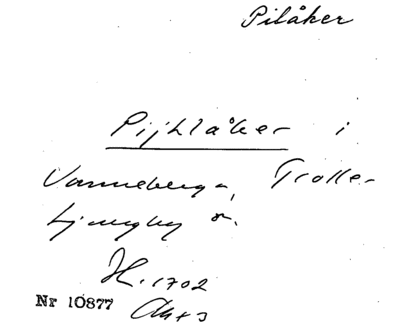 Pilåker
Pijhlåker i
Vanneberga, Trolle-
Ljungby sn.
H. 1702
Nr 10877 Akt 3